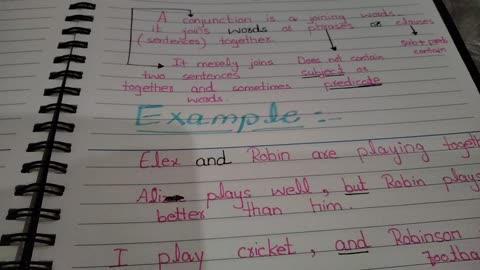 A conjunction is a joining words.
it joins words or phrases or clauses
(sentences) together.
contain
It merely joins Does not contain
two sentences subject or
together and sometimes predicate
words.
Example :-
Elex and Robin are playing togeth
Ali plays well, but Robin plays
better than him.
I play cricket, and Robinson
footba